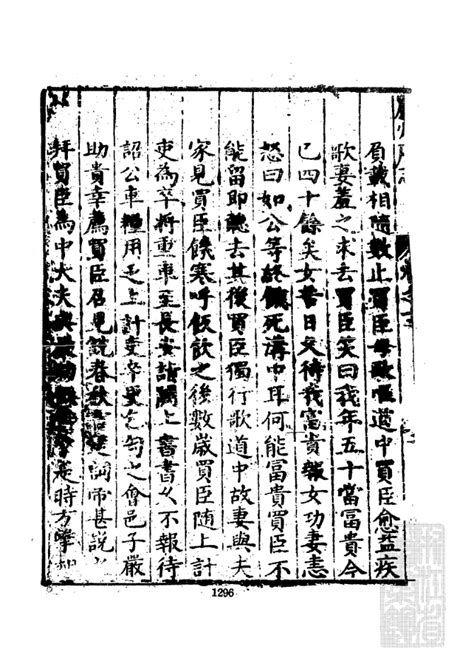 負戴相隨數止買臣毋歌嘔道中買臣愈益疾
歌妻羞之求去買臣笑曰我年五十當富貴今
已四十餘矣女苦日久待我富貴報女功妻恚
怒曰如公等終餓死溝中耳何能富貴買臣不
能留即聽去其後買臣獨行歌道中故妻與夫
家見買臣饑寒呼飯飲之後數歲買臣隨上計
吏為卒將重車至長安詣闕上書書久不報待
詔公車糧用乏上計吏卒更乞匄之會邑子嚴
助貴幸薦買臣召見說春秋言楚詞帝甚說
拜買臣為中大夫與嚴助 是時方築
1296